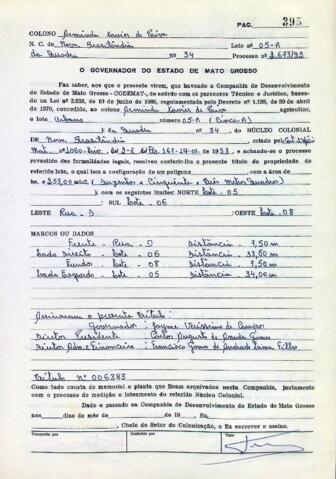 PAG. 395
COLONO Arminda Xavier de Paiva
N. C. de Nova Brasilândia Lote nº 05-A
da Quadra Nº 34 Processo nº 3.673/92
O GOVERNADOR DO ESTADO DE MATO GROSSO
Faz saber, aos que o presente virem, que havendo a Companhia de Desenvolvimento
do Estado de Mato Grosso - CODEMAT, de acordo com os pareceres Técnico e Jurídico, baseados
na Lei nº 2.233, de 10 de junho de 1960, regulamentada pelo Decreto nº 1.138, de 30 de abril
de 1970, concedido, ao colono Arminda Xavier de Paiva agricultor,
o lote Urbano número 05-A (Cinco-A)
da Quadra nº 34, do NÚCLEO COLONIAL
DE Nova Brasilândia, criado pela
Mat. nº 1060 2-E 14-07-1993, e achando-se o processo
revestido das formalidades legais, resolveu conferir-lhe o presente título de propriedade do
referido lote, o qual tem a configuração de um polígono com a área de
hs. e 253,00 m2 (Duzentos e Cinquenta e Três Metros Quadros)
e com os seguintes limites: NORTE Lote - 05
SUL Lote - 06
LESTE Rua - D :OESTE Lote - 08
MARCOS OU DADOS
Frente - Rua - D Distância - 7,50 m
Lado Direito - Lote - 06 Distância - 33,00 m
Fundos - Lote - 08 Distância - 7,50 m
Lado Esquerdo - Lote - 05 Distância - 34,00 m
Assinaram o presente Título:
Governador: Jayme Veríssimo de Campos
Diretor Presidente: Carlos Augusto de Arruda Gomes
Diretor Adm. Financeiro: Francisco Gomes de Andrade Lima Filho
Título Nº 006383
Como tudo consta do memorial e planta que ficam arquivados nesta Companhia, juntamente
com o processo de medição e loteamento do referido Núcleo Colonial.
Dado e passado na Companhia de Desenvolvimento do Estado de Mato Grosso
aos dias do mês de de 19 , Eu,
, Chefe do Setor de Colonização, o fiz escrever e assino.
Transcrito por Conferido por Visto